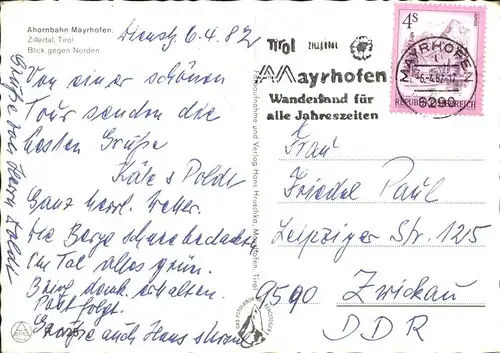 Ahornbahn Mayrhofen,
Zillertal, Tirol
Blick gegen Norden
Dienst, 6.4.82
Von einer schönen
Tour senden die
besten Grüße
Käte & Poldi
Ganz herrl. Wetter.
Die Berge schneebedeckt
Im Tal alles grün.
Post folgt.
Grüße auch Hans
Farbaufnahme und Verlag Hans Hruschka, Mayrhofen, Tirol
Tirol
Mayrhofen
Wanderland für
alle Jahreszeiten
4S
REPUBLIK ÖSTERREICH
MAYRHOFEN
6.4.82
6290
Frau
Friedel Paul
Leipziger Str. 125
9590 Zwickau
DDR